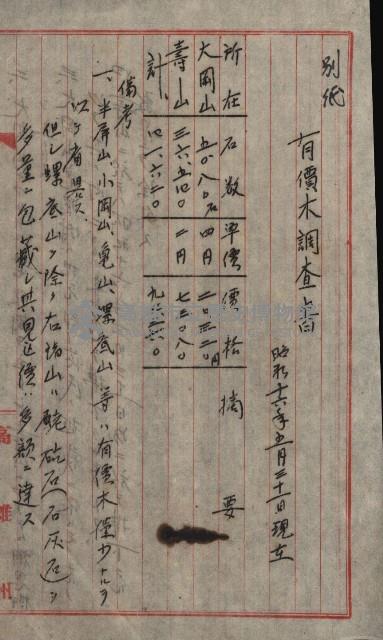 別紙
有價木調査書
昭和十六年五月三十一日現在
所在 石数 單價 價格 摘要
大岡山 五〇八〇石 四円 二〇三二〇円
壽山 三六、五四〇 二円 七三〇八〇
計
備考
一、半屏山、小岡山、亀山、螺底山等ハ有價木僅少ナルヲ
以テ省畧ス
但シ螺底山ヲ除ク右諸山ハ硓𥑮石(石灰石)ヲ
多量ニ包藏シ其見込價ハ多額ニ達ス
高雄州